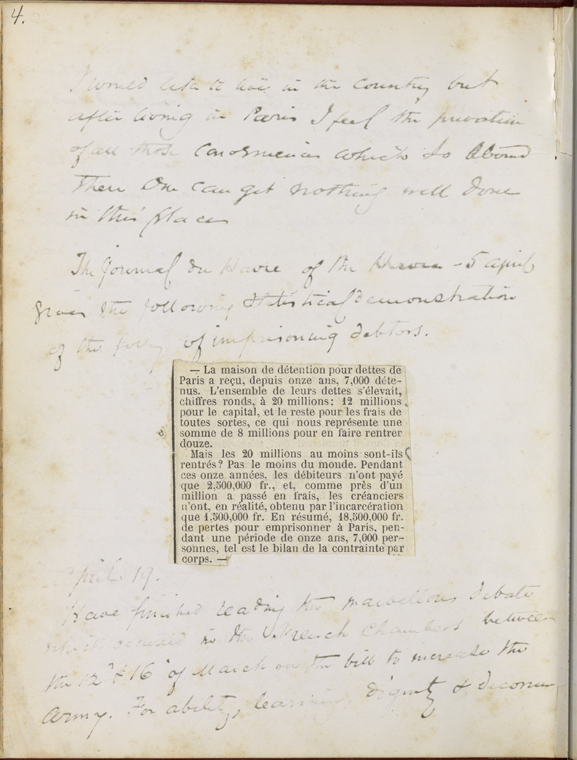 4.
I would like to live in the country but
after living in Paris I feel the privation
of all those which so abound
There One can get nothing well done
in this place
The Journal du Havre of the 5 april
gives the following statistical demonstration
of the folly of imprisoning debtors.
— La maison de détention pour dettes de
Paris a reçu, depuis onze ans, 7,000 déte-
nus. L'ensemble de leurs dettes s'élevait,
chiffres ronds, à 20 millions: 12 millions
pour le capital, et le reste pour les frais de
toutes sortes, ce qui nous représente une
somme de 8 millions pour en faire rentrer
douze.
Mais les 20 millions au moins sont-ils
rentrés? Pas le moins du monde. Pendant
ces onze années, les débiteurs n'ont payé
que 2,500,000 fr., et, comme près d'un
million a passé en frais, les créanciers
n'ont, en réalité, obtenu par l'incarcération
que 1,500,000 fr. En résumé, 18,500,000 fr.
de pertes pour emprisonner à Paris, pen-
dant une période de onze ans, 7,000 per-
sonnes, tel est le bilan de la contrainte par
corps. —
April 19.
Have finished reading the marvellous debate
which occurred in the French Chambers between
the 12 & 16 of March on the bill to increase the
Army. For ability, learning, dignity & decorum